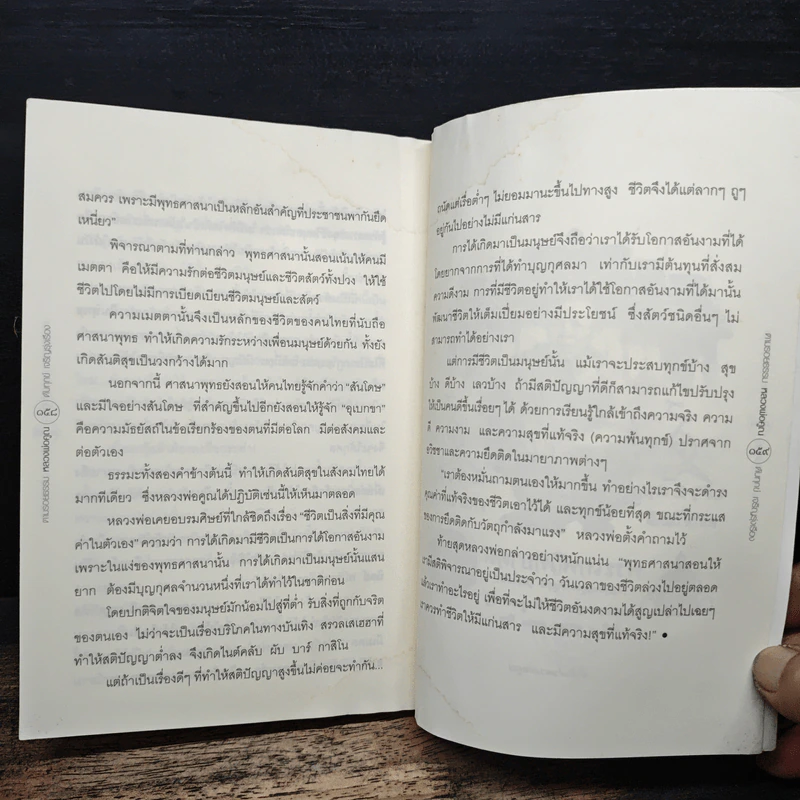 สมควร เพราะมีพุทธศาสนาเป็นหลักอันสำคัญที่ประชาชนพากันยึด
เหนี่ยว"
พิจารณาตามที่ท่านกล่าว พุทธศาสนานั้นสอนเน้นให้คนมี
เมตตา คือให้มีความรักต่อชีวิตมนุษย์และชีวิตสัตว์ทั้งปวง ให้ใช้
ชีวิตไปโดยไม่มีการเบียดเบียนชีวิตมนุษย์และสัตว์
ความเมตตานั้นจึงเป็นหลักของชีวิตของคนไทยที่นับถือ
ศาสนาพุทธ ทำให้เกิดความรักระหว่างเพื่อนมนุษย์ด้วยกัน ทั้งยัง
เกิดสันติสุขเป็นวงกว้างได้มาก
นอกจากนี้ ศาสนาพุทธยังสอนให้คนไทยรู้จักคำว่า "สันโดษ"
และมีใจอย่างสันโดษ ที่สำคัญขึ้นไปอีกยังสอนให้รู้จัก "อุเบกขา"
คือความมัธยัสถ์ในข้อเรียกร้องของตนที่มีต่อโลก มีต่อสังคมและ
ต่อตัวเอง
ธรรมะทั้งสองคำข้างต้นนี้ ทำให้เกิดสันติสุขในสังคมไทยได้
มากทีเดียว ซึ่งหลวงพ่อคูณได้ปฏิบัติเช่นนี้ให้เห็นมาตลอด
หลวงพ่อเคยอบรมศิษย์ที่ใกล้ชิดถึงเรื่อง "ชีวิตเป็นสิ่งที่มีคุณ
ค่าในตัวเอง" ความว่า การได้เกิดมามีชีวิตเป็นการได้โอกาสอันงาม
เพราะในแง่ของพุทธศาสนานั้น การได้เกิดมาเป็นมนุษย์นั้นแสน
ยาก ต้องมีบุญกุศลจำนวนหนึ่งที่เราได้ทำไว้ในชาติก่อน
โดยปกติจิตใจของมนุษย์มักน้อมไปสู่ที่ต่ำ รับสิ่งที่ถูกกับจริต
ของตนเอง ไม่ว่าจะเป็นเรื่องบริโภคในทางบันเทิง สรวลเสเฮฮาที่
ทำให้สติปัญญาต่ำลง จึงเกิดไนต์คลับ ผับ บาร์ กาสิโน
แต่ถ้าเป็นเรื่องดีๆ ที่ทำให้สติปัญญาสูงขึ้นไม่ค่อยจะทำกัน...
ตามรอยธรรม หลวงพ่อคูณ ๑๕๘ สันฤทธิ์ เจริญรุ่งเรือง
ถนัดแต่เรื่องต่ำๆ ไม่ยอมมานะขึ้นไปทางสูง ชีวิตจึงได้แต่ลากๆ ถูๆ
อยู่กันไปอย่างไม่มีแก่นสาร
การได้เกิดมาเป็นมนุษย์จึงถือว่าเราได้รับโอกาสอันงามที่ได้
โดยยากจากการที่ได้ทำบุญกุศลมา เท่ากับเรามีต้นทุนที่สั่งสม
ความดีงาม การที่มีชีวิตอยู่ทำให้เราได้ใช้โอกาสอันงามที่ได้มานั้น
พัฒนาชีวิตให้เต็มเปี่ยมอย่างมีประโยชน์ ซึ่งสัตว์ชนิดอื่นๆ ไม่
สามารถทำได้อย่างเรา
แต่การมีชีวิตเป็นมนุษย์นั้น แม้เราจะประสบทุกข์บ้าง สุข
บ้าง ดีบ้าง เลวบ้าง ถ้ามีสติปัญญาที่ดีก็สามารถแก้ไขปรับปรุง
ให้เป็นคนดีขึ้นเรื่อยๆ ได้ ด้วยการเรียนรู้ใกล้เข้าถึงความจริง ความ
ดี ความงาม และความสุขที่แท้จริง (ความพ้นทุกข์) ปราศจาก
อวิชชาและความยึดติดในมายาภาพต่างๆ
"เราต้องหมั่นถามตนเองให้มากขึ้น ทำอย่างไรเราจึงจะดำรง
คุณค่าที่แท้จริงของชีวิตเอาไว้ได้ และทุกข์น้อยที่สุด ขณะที่กระแส
ของการยึดติดกับวัตถุกำลังมาแรง" หลวงพ่อตั้งคำถามไว้
ท้ายสุดหลวงพ่อกล่าวอย่างหนักแน่น "พุทธศาสนาสอนให้
เรามีสติพิจารณาอยู่เป็นประจำว่า วันเวลาของชีวิตล่วงไปอยู่ตลอด
แล้วเราทำอะไรอยู่ เพื่อที่จะไม่ให้ชีวิตอันงดงามได้สูญเปล่าไปเฉยๆ
เราควรทำชีวิตให้มีแก่นสาร และมีความสุขที่แท้จริง!" ●
ตามรอยธรรม หลวงพ่อคูณ ๑๕๙